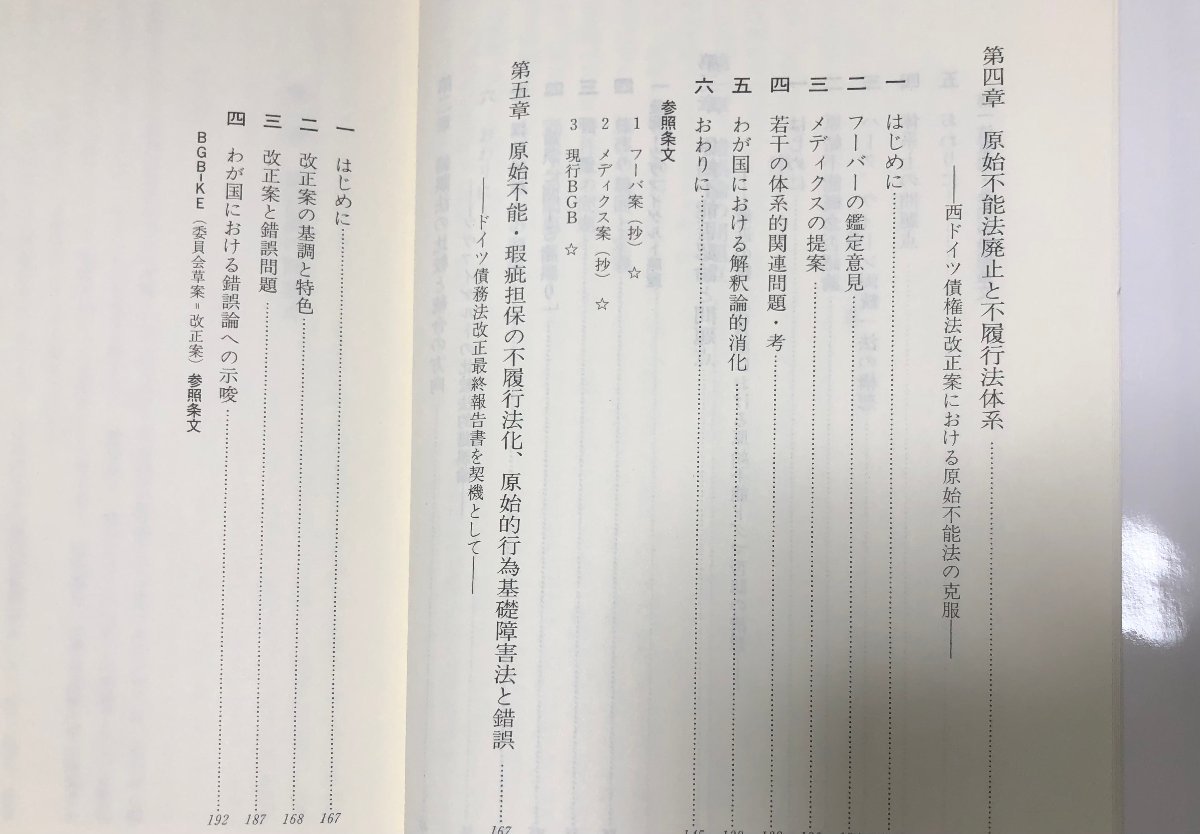 第四章 原始不能法廃止と不履行法体系
――西ドイツ債権法改正案における原始不能法の克服――
一 はじめに
二 フーバーの鑑定意見
三 メディクスの提案
四 若干の体系的関連問題・考
五 わが国における解釈論的消化
六 おわりに
参照条文
1 フーバ案(抄) ☆
2 メディクス案(抄) ☆
3 現行BGB ☆
第五章 原始不能・瑕疵担保の不履行法化、原始的行為基礎障害法と錯誤 167
――ドイツ債務法改正最終報告書を契機として――
一 はじめに 167
二 改正案の基調と特色 168
三 改正案と錯誤問題 187
四 わが国における錯誤論への示唆 192
BGB-KE(委員会草案=改正案)参照条文